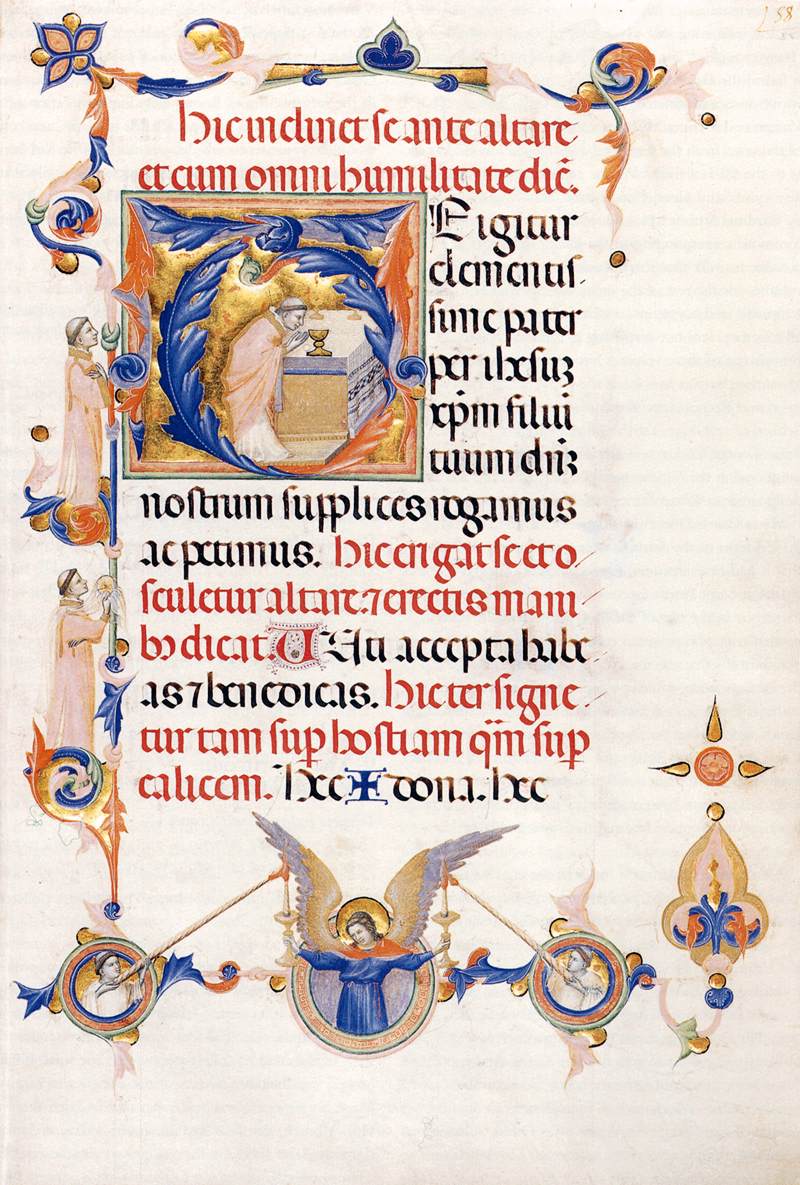 58
Hic inclinet se ante altare
et cum omni humilitate dic̄.
TE igitur
clementis/
sime pater
per ihesuʒ
xp̄m filiū
tuum dn̄ʒ
nostrum supplices rogamus
ac petimus. Hic erigat se et o/
sculetur altare. ⁊ erectis mani/
bus dicat. Uti accepta habe/
as ⁊ benedicas. Hic ter signe/
tur tam sup̱ hostiam qm̄ sup̱
calicem. Hec ✠ dona. hec